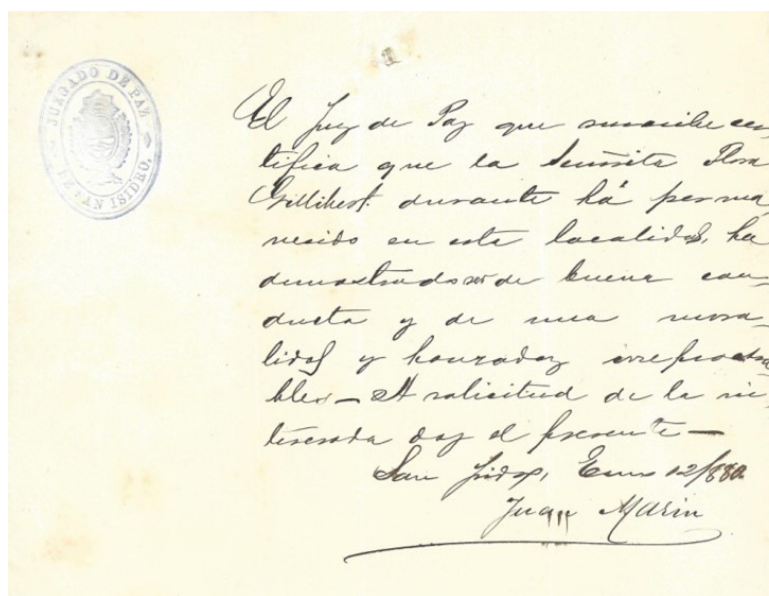 JUZGADO DE PAZ
DE SAN ISIDRO.
El Juez de Paz que suscribe cer-
tifica que la Señorita Flora
Gillibert durante há perma-
necido en esta localidad, ha
demostrado ser de buena con-
ducta y de una mora-
lidad y honradez irreprocha-
bles — A solicitud de la in-
teresada doy el presente —
San Isidro, Enero 12/880
Juan Marin